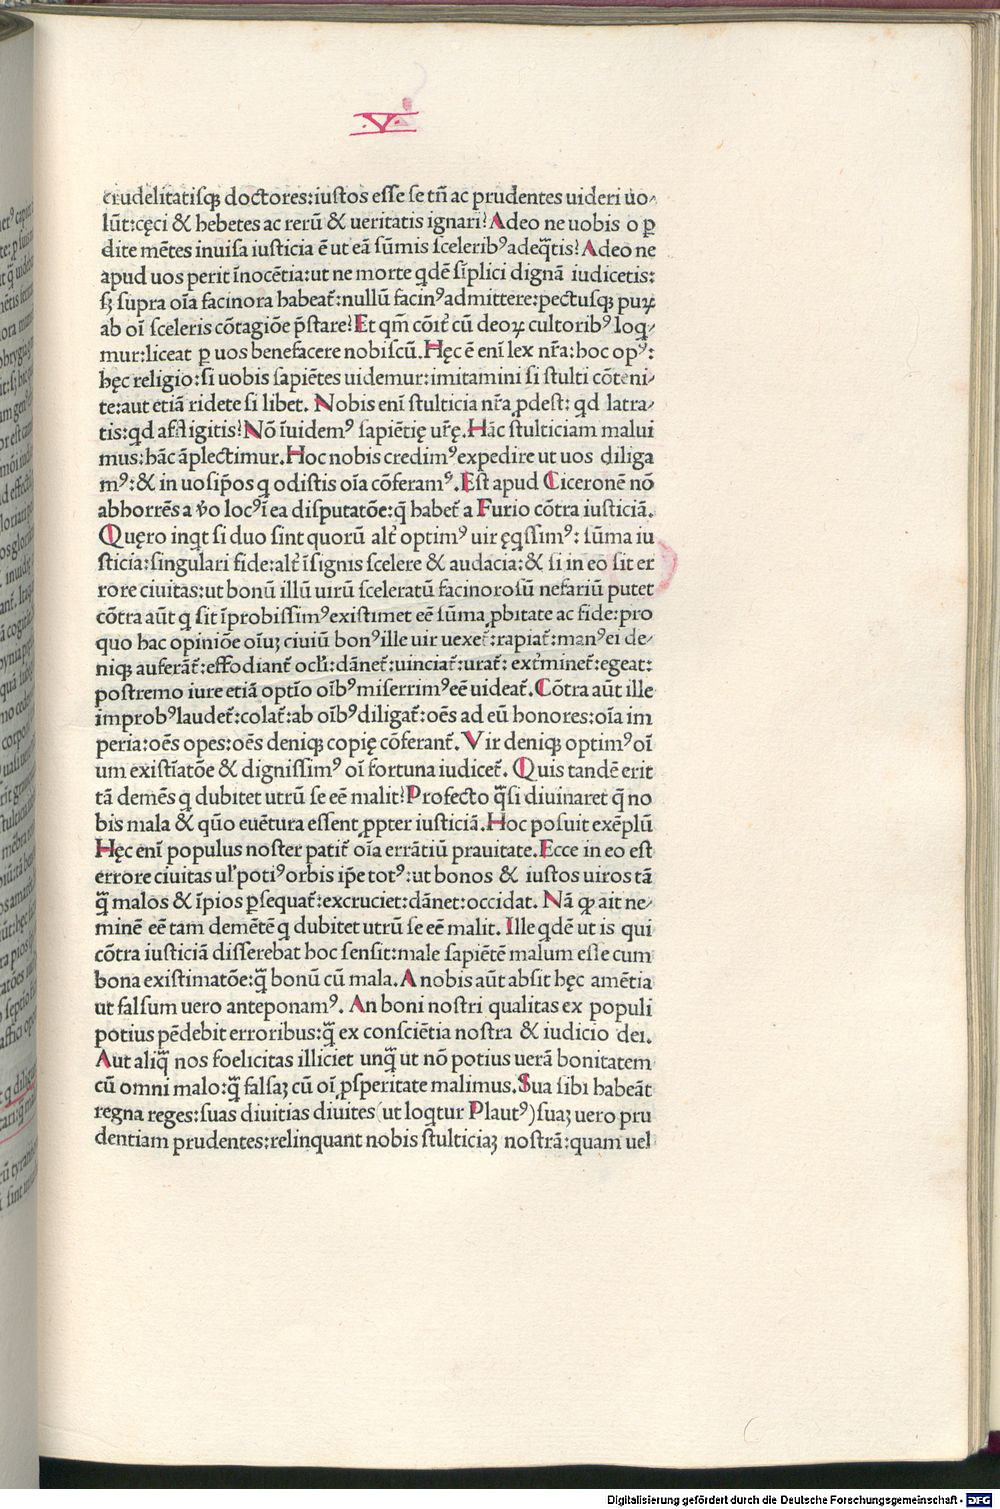 .V.
crudelitatisqꝫ doctores:iustos esse se tñ ac prudentes uideri uo⸗
lūt:cęci & hebetes ac rerū & ueritatis ignari? Adeo ne uobis o ꝑ
dite mētes inuisa iusticia ē ut eā sūmis sceleribꝰ adeq̄tis? Adeo ne
apud uos perit īnocētia:ut ne morte qdē sīplici dignā iudicetis:
sꝫ supra oīa facinora habeat᷑:nullū facinꝰ admittere:pectusqꝫ puꝝ
ab oī sceleris cōtagiōe p̄stare? Et qm̄ cōīt᷑ cū deoꝝ cultoribꝰ loq⸗
mur:liceat ꝑ uos benefacere nobiscū. Hęc ē enī lex nr̄a:hoc opꝰ:
hęc religio:si uobis sapiētes uidemur:imitamini si stulti cōteni⸗
te:aut etiā ridete si libet. Nobis enī stulticia nr̄a ꝓdest: qd latra⸗
tis:qd affligitis? Nō īuidemꝰ sapiētię ur̄ę. Hāc stulticiam malui
mus:hāc āplectimur. Hoc nobis credimꝰ expedire ut uos diliga
mꝰ:& in uosip̄os q odistis oīa cōferamꝰ. Est apud Ciceronē nō
abhorrēs a ūo locꝰ ī ea disputatōe:q̄ habet᷑ a Furio cōtra iusticiā.
Quęro inqt si duo sint quorū alt᷑ optimꝰ uir ęqssimꝰ: sūma iu
sticia:singulari fide:alt᷑ īsignis scelere & audacia:& si in eo sit er
rore ciuitas:ut bonū illū uirū sceleratū facinorosū nefariū putet
cōtra aūt q sit īprobissimꝰ existimet eē sūma ꝓbitate ac fide:pro
quo hac opiniōe oīuꝫ ciuiū bonꝰ ille uir uexet᷑:rapiat᷑:manꝰ ei de⸗
niqꝫ auferāt᷑:effodiant᷑ ocl̄i:dānet᷑:uinciat᷑:urat᷑: ext᷑minet᷑:egeat:
postremo iure etiā optīo oībꝰ miserrimꝰ eē uideat᷑. Cōtra aūt ille
improbꝰ laudet᷑:colat᷑:ab oībꝰ diligat᷑:oēs ad eū honores:oīa im
peria:oēs opes:oēs deniqꝫ copię cōferant᷑. Vir deniqꝫ optimꝰ oī
um existīatōe & dignissimꝰ oī fortuna iudicet᷑. Quis tandē erit
tā demēs q dubitet utrū se eē malit? Profecto q̄si diuinaret q̄ no
bis mala & qūo euētura essent ꝓpter iusticiā. Hoc posuit exēplū
Hęc enī populus noster patit᷑ oīa errātiū prauitate. Ecce in eo est
errore ciuitas ul̄ potiꝰ orbis ip̄e totꝰ:ut bonos & iustos uiros tā
q̄ malos & īpios ꝑsequat᷑:excruciet:dānet:occidat. Nā ꝙ ait ne⸗
minē eē tam demētē q dubitet utrū se eē malit. Ille qdē ut is qui
cōtra iusticiā disserebat hoc sensit:male sapiētē malum esse cum
bona existimatōe:q̄ bonū cū mala. A nobis aūt absit hęc amētia
ut falsum uero anteponamꝰ. An boni nostri qualitas ex populi
potius pēdebit erroribus:q̄ ex consciētia nostra & iudicio dei.
Aut aliq̄ nos foelicitas illiciet unq̄ ut nō potius uerā bonitatem
cū omni malo:q̄ falsaꝫ cū oī ꝓsperitate malimus. Sua sibi habeāt
regna reges:suas diuitias diuites (ut loqtur Plautꝰ) suaꝫ uero pru
dentiam prudentes:relinquant nobis stulticiaꝫ nostrā:quam uel
Digitalisierung gefördert durch die Deutsche Forschungsgemeinschaft - DFG